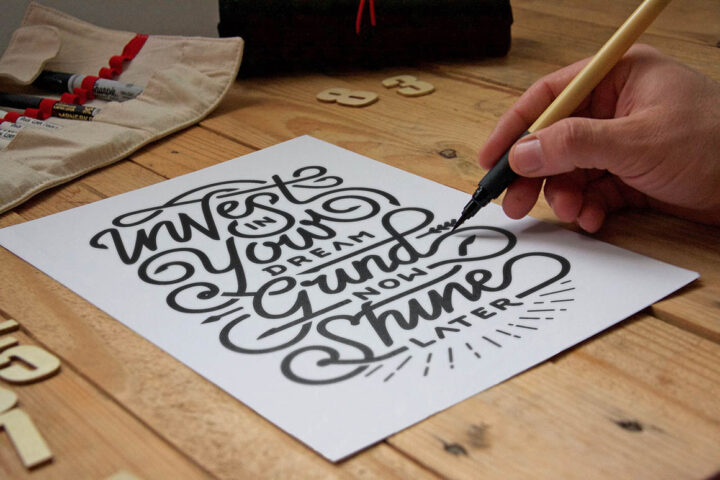 inVest
IN
Your
DREAM
Grind
NOW
Shine
LATER
8 3
Sharpie